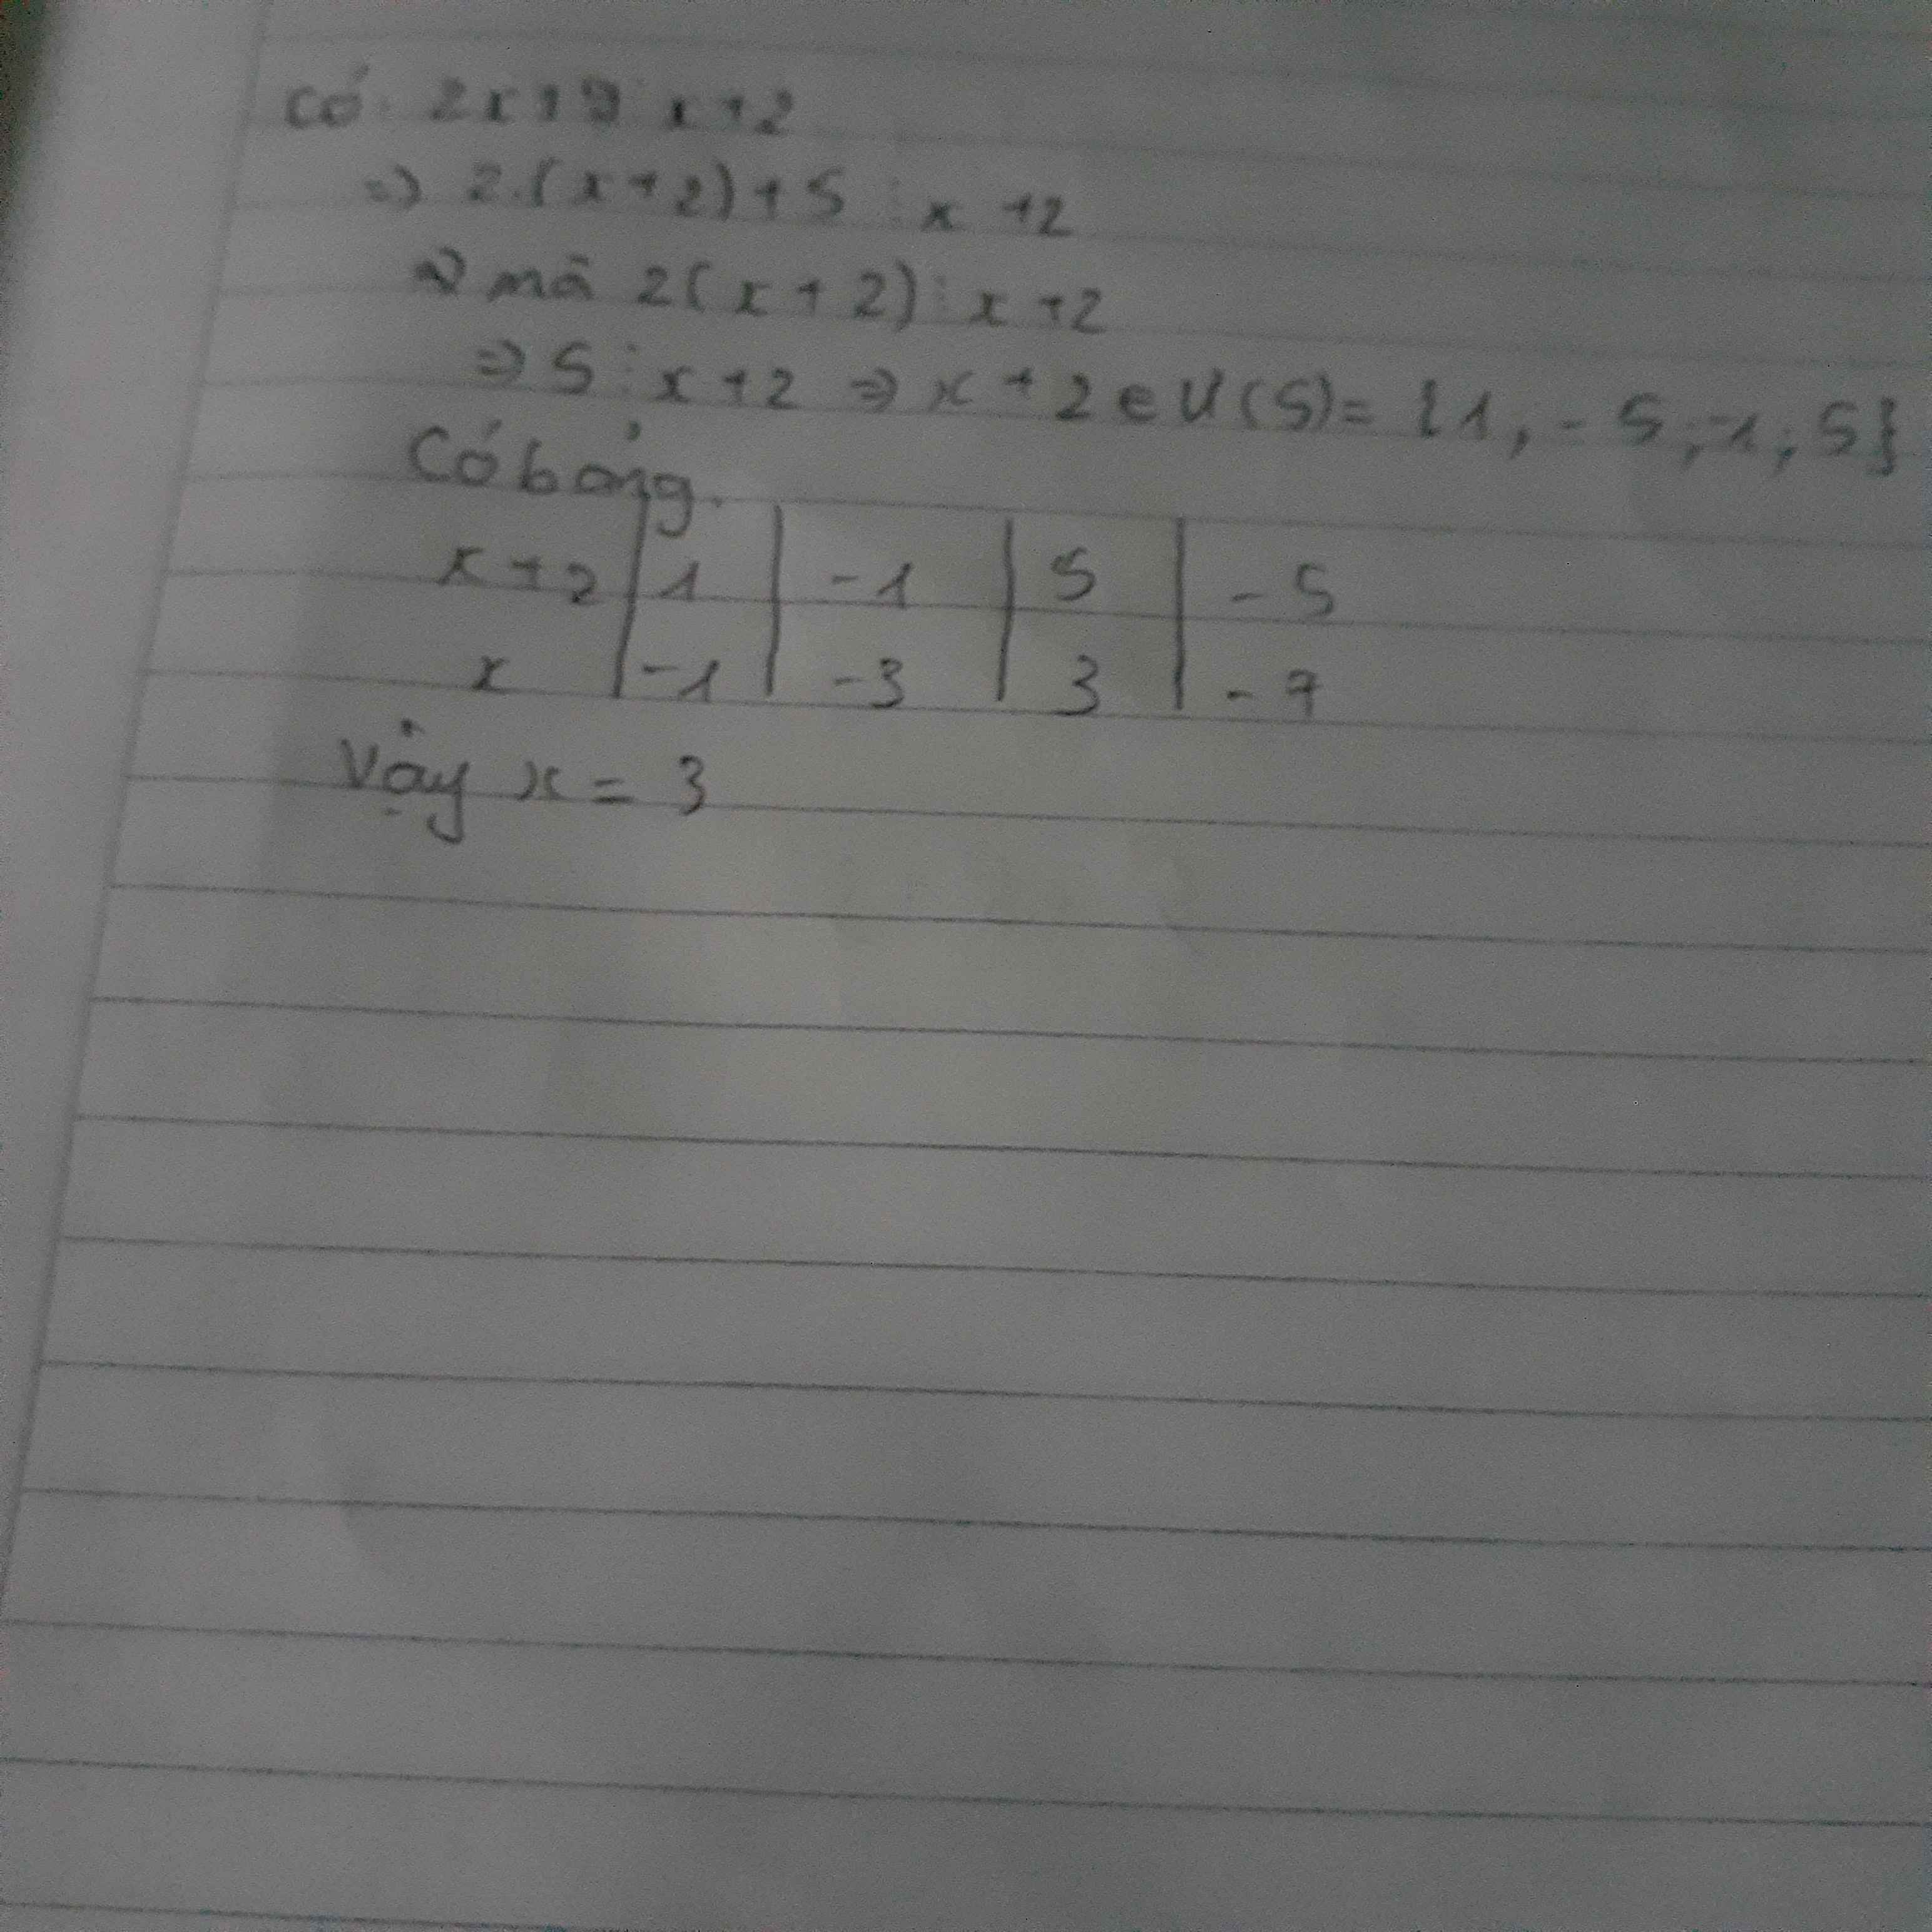 Có 2x+9 ⋮ x+2
=> 2.(x+2)+5 ⋮ x+2
mà 2(x+2) ⋮ x+2
=> 5 ⋮ x+2 => x+2 ∈ Ư(5)= {1, -5; -1; 5}
Có bảng.
x+2 | 1 | -1 | 5 | -5
x | -1 | -3 | 3 | -7
Vậy x = 3